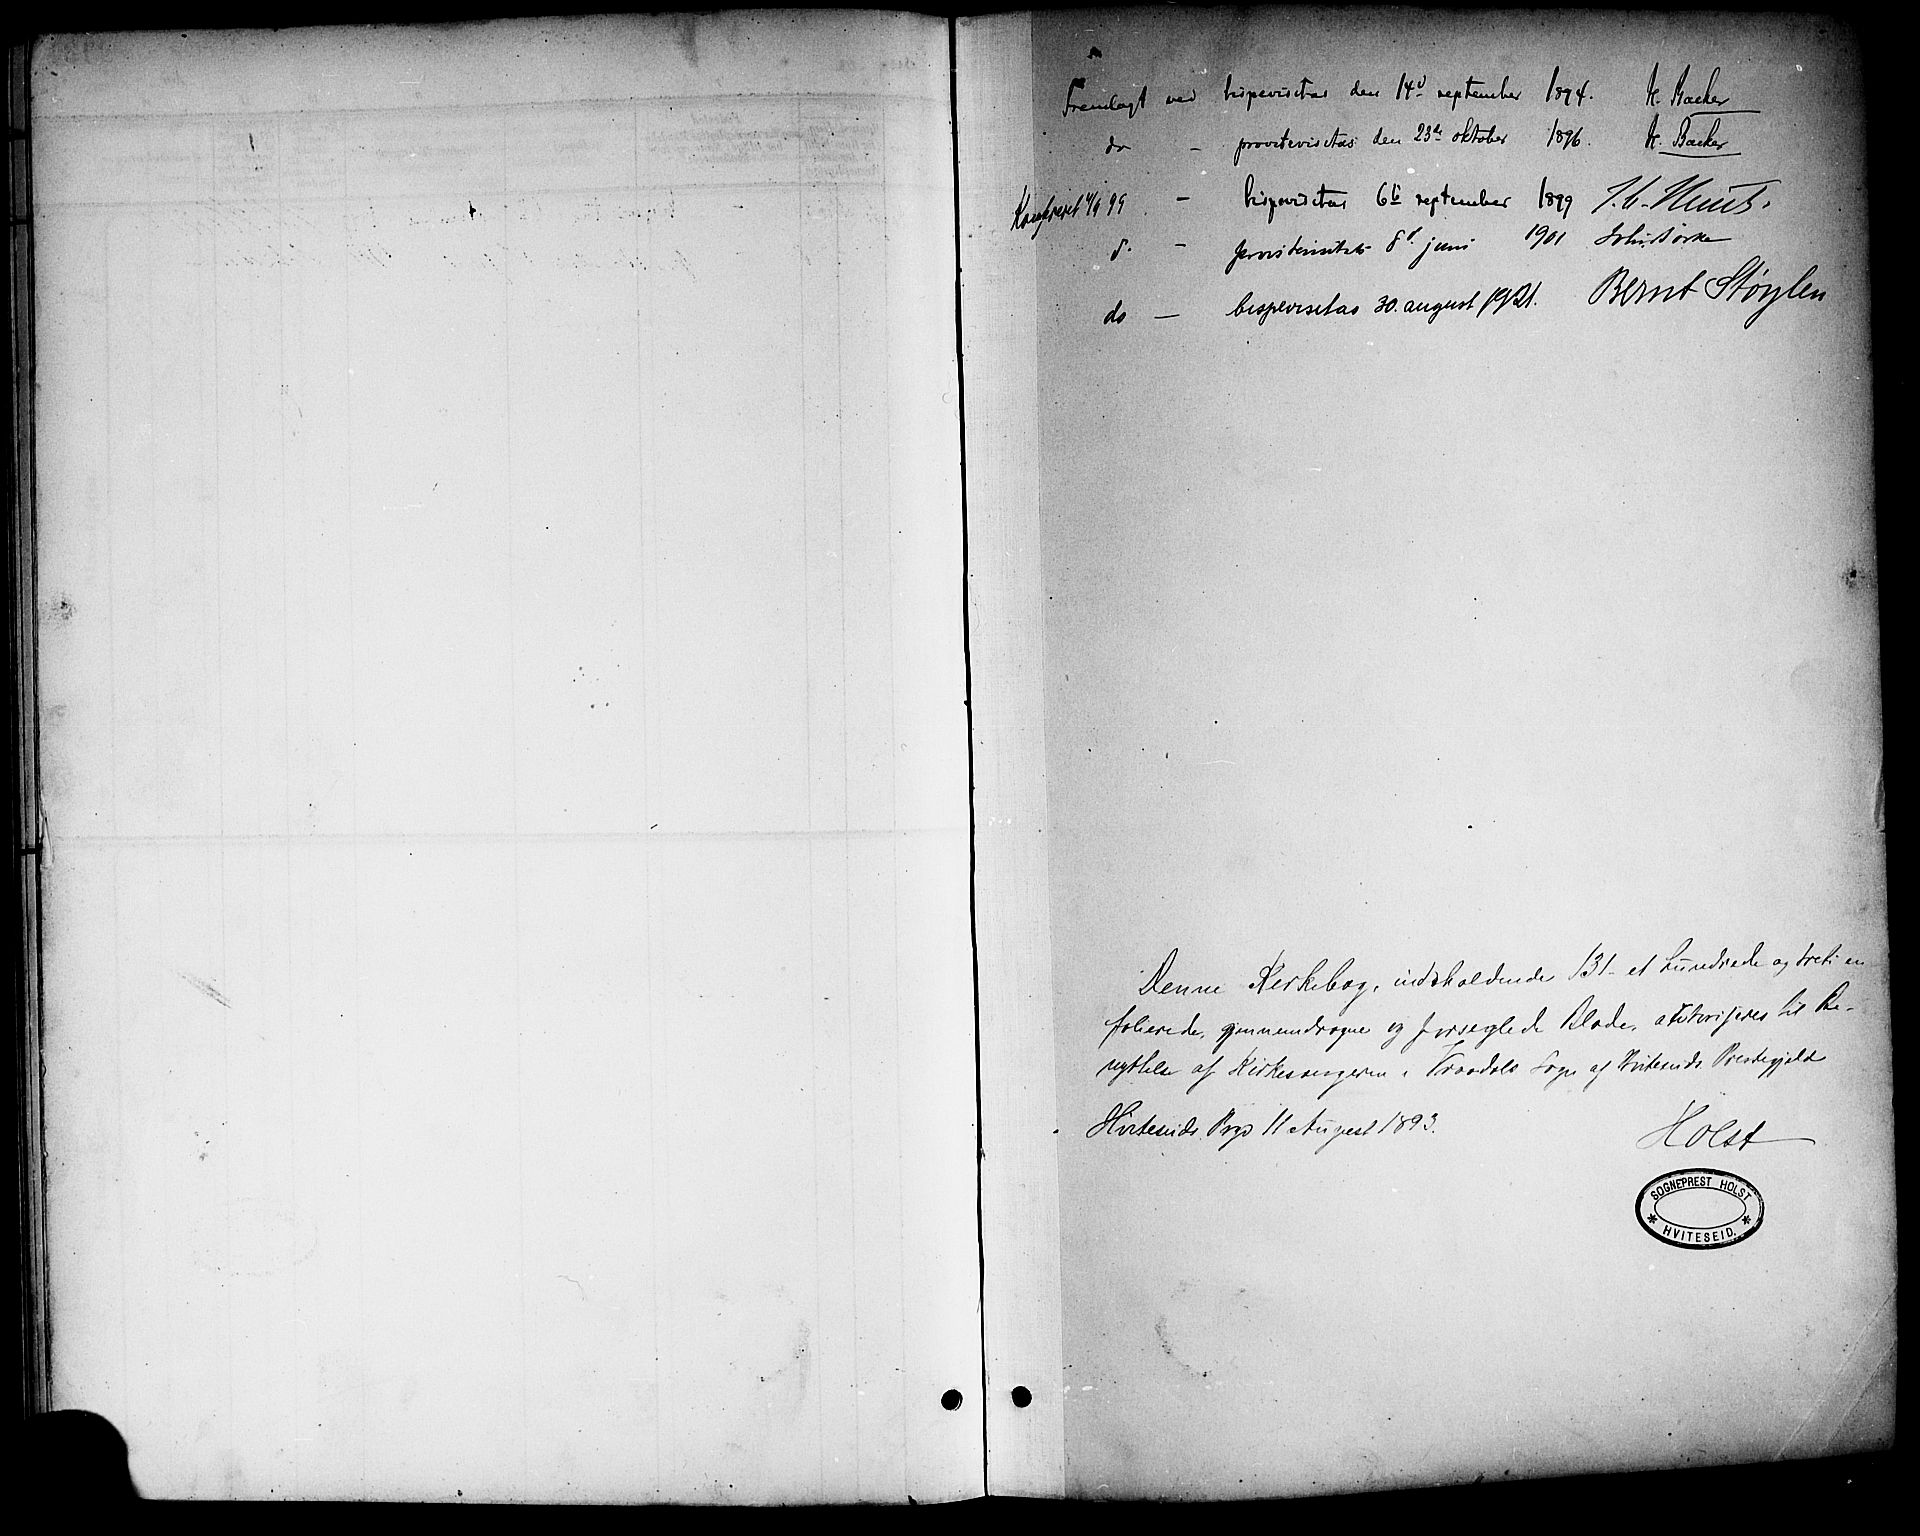 Fremlagt ved bispevisitas den 14d september 1894. H. Backer
do - provstevisitas den 23de oktober 1896. H. Backer
Konfereret 4/9 99 - bispevisitas 6te september 1899 J. C. Heuch.
d. - provstevisitas 8d. juni 1901
do - bispevisitas 30. august 1921. Bernt Støylen
Denne Kirkebog, indeholdende 131 - et hundrede og treti en
folierede, gjennemdragne og forseglede Blade, autoriseres til Be-
nyttelse af Kirkesangeren i Vraadals Sogn af Hviteseids Prestegjeld
Hviteseids Pgd 11 August 1893. Holst
SOGNEPREST HOLST
* HVITESEID. *